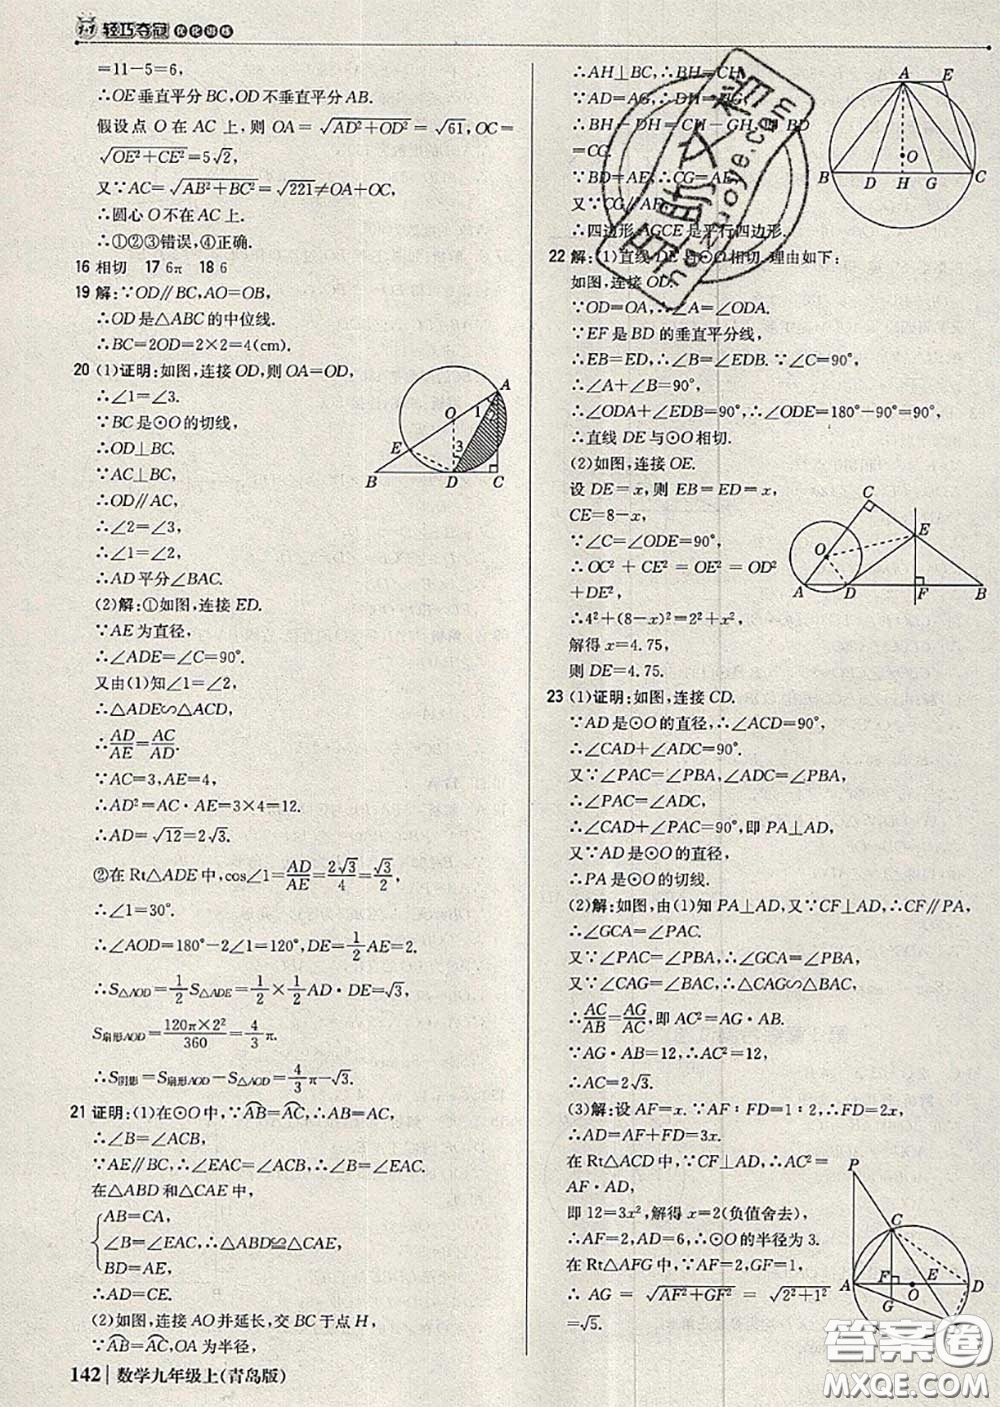 1+1 轻巧夺冠 优化训练
=11-5=6,
∴OE垂直平分BC,OD不垂直平分AB.
假设点O在AC上,则OA=√(AD²+OD²)=√61,OC=
√(OE²+CE²)=5√2,
又∵AC=√(AB²+BC²)=√221≠OA+OC,
∴圆心O不在AC上.
∴①②③错误,④正确.
16 相切 17 6π 18 6
19 解:∵OD∥BC,AO=OB,
∴OD是△ABC的中位线.
∴BC=2OD=2×2=4(cm).
20 (1)证明:如图,连接OD,则OA=OD,
∴∠1=∠3.
∵BC是⊙O的切线,
∴OD⊥BC.
∵AC⊥BC,
∴OD∥AC,
∴∠2=∠3,
∴∠1=∠2,
∴AD平分∠BAC.
(2)解:①如图,连接ED.
∵AE为直径,
∴∠ADE=∠C=90°.
又由(1)知∠1=∠2,
∴△ADE∽△ACD,
∴AD/AE=AC/AD.
∵AC=3,AE=4,
∴AD²=AC·AE=3×4=12.
∴AD=√12=2√3.
②在Rt△ADE中,cos∠1=AD/AE=2√3/4=√3/2,
∴∠1=30°.
∴∠AOD=180°-2∠1=120°,DE=1/2AE=2.
∴S△AOD=1/2S△ADE=1/2×1/2AD·DE=√3,
S扇形AOD=120π×2²/360=4/3π.
∴S阴影=S扇形AOD-S△AOD=4/3π-√3.
21 证明:(1)在⊙O中,∵AB=AC,∴AB=AC,
∴∠B=∠ACB,
∵AE∥BC,∴∠EAC=∠ACB,∴∠B=∠EAC,
在△ABD和△CAE中,
AB=CA,
∠B=∠EAC,∴△ABD≌△CAE,
BD=AE,
∴AD=CE.
(2)如图,连接AO并延长,交BC于点H,
∵AB=AC,OA为半径,
142 数学九年级上(青岛版)
∴AH⊥BC,∴BH=CH.
∵AD=AG,∴DH=HG,
∴BH-DH=CH-GH,即BD
=CG.
∵BD=AE,∴CG=AE.
又∵CG∥AE,
∴四边形AGCE是平行四边形.
22 解:(1)直线DE与⊙O相切.理由如下:
如图,连接OD.
∵OD=OA,∴∠A=∠ODA.
∵EF是BD的垂直平分线,
∴EB=ED,∴∠B=∠EDB.∵∠C=90°,
∴∠A+∠B=90°,
∴∠ODA+∠EDB=90°,∴∠ODE=180°-90°=90°,
∴直线DE与⊙O相切.
(2)如图,连接OE.
设DE=x,则EB=ED=x,
CE=8-x;
∵∠C=∠ODE=90°,
∴OC²+CE²=OE²=OD²
+DE²,
∴4²+(8-x)²=2²+x²,
解得x=4.75,
则DE=4.75.
23 (1)证明:如图,连接CD.
∵AD是⊙O的直径,∴∠ACD=90°,
∴∠CAD+∠ADC=90°.
又∵∠PAC=∠PBA,∠ADC=∠PBA,
∴∠PAC=∠ADC,
∴∠CAD+∠PAC=90°,即PA⊥AD,
又∵AD是⊙O的直径,
∴PA是⊙O的切线.
(2)解:如图,由(1)知PA⊥AD,又∵CF⊥AD,∴CF∥PA,
∴∠GCA=∠PAC.
又∵∠PAC=∠PBA,∴∠GCA=∠PBA,
又∵∠CAG=∠BAC,∴△CAG∽△BAC,
∴AC/AB=AG/AC,即AC²=AG·AB.
∵AG·AB=12,∴AC²=12,
∴AC=2√3.
(3)解:设AF=x.∵AF∶FD=1∶2,∴FD=2x,
∴AD=AF+FD=3x.
在Rt△ACD中,∵CF⊥AD,∴AC²=
AF·AD,
即12=3x²,解得x=2(负值舍去),
∴AF=2,AD=6,∴⊙O的半径为3.
在Rt△AFG中,∵AF=2,GF=1,
∴AG=√(AF²+GF²)=√(2²+1²)
=√5.
答案卷
MXQE.COM